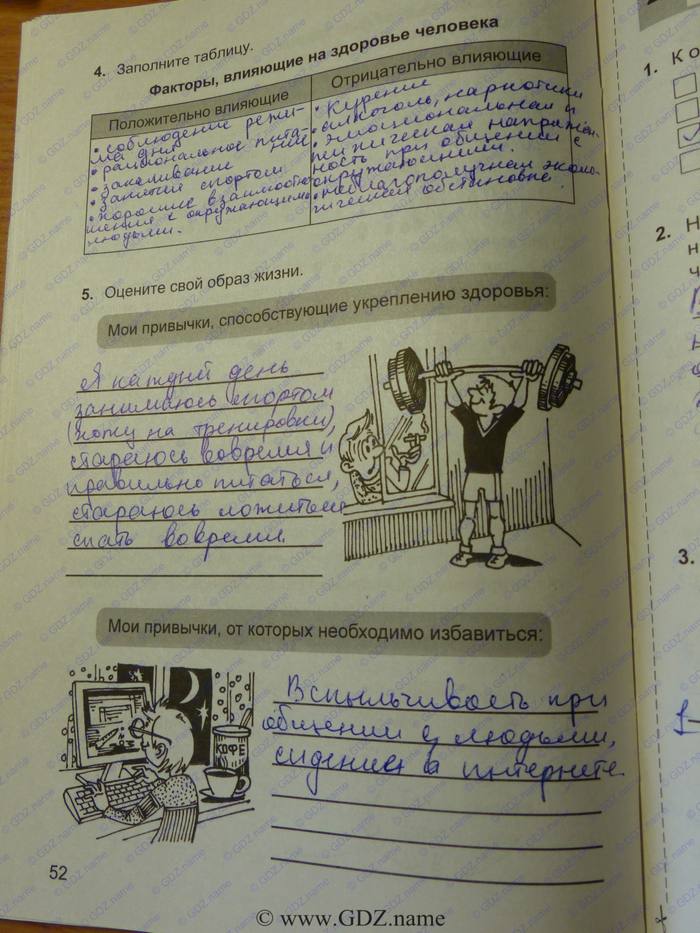 4. Заполните таблицу.
Факторы, влияющие на здоровье человека
Положительно влияющие
Отрицательно влияющие
• соблюдение режи-
ма дня
• рациональное пита-
ние
• закаливание
• занятия спортом
• хорошие взаимоотно-
шения с окружающими
людьми.
• Курение
• алкоголь, наркотики
• эмоциональная и
психическая напряжён-
ность при общении с
окружающими.
• неблагополучная эколо-
гическая обстановка.
5. Оцените свой образ жизни.
Мои привычки, способствующие укреплению здоровья:
Я каждый день
занимаюсь спортом
(хожу на тренировки),
стараюсь вовремя и
правильно питаться,
стараюсь ложиться
спать вовремя.
Мои привычки, от которых необходимо избавиться:
КОФЕ
Вспыльчивость при
общении с людьми,
сидение в интернете.
52
1. К о
2. Н
н
ч
3.
© www.GDZ.name